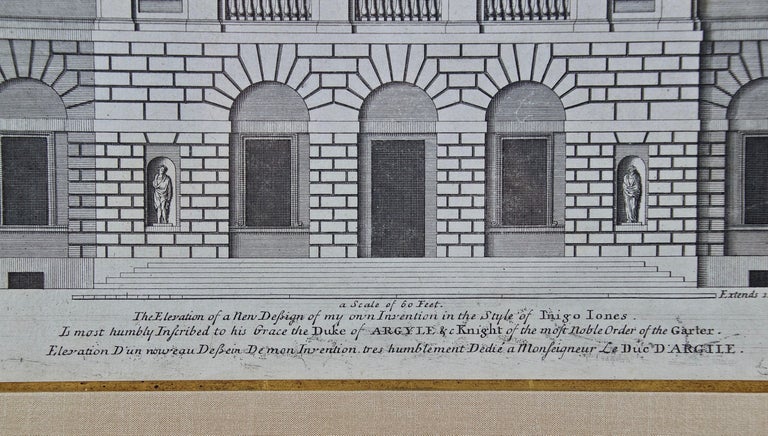 a Scale of 60 Feet.
Extends
The Elevation of a New Deßign of my own Invention in the Style of Inigo Iones.
Is most humbly Inſcribed to his Grace the Duke of ARGYLE &c Knight of the moſt Noble Order of the Garter.
Elevation D'un nouveau Deßein De mon Invention tres humblement Dedié a Monſeigneur Le Duc D'ARGILE.